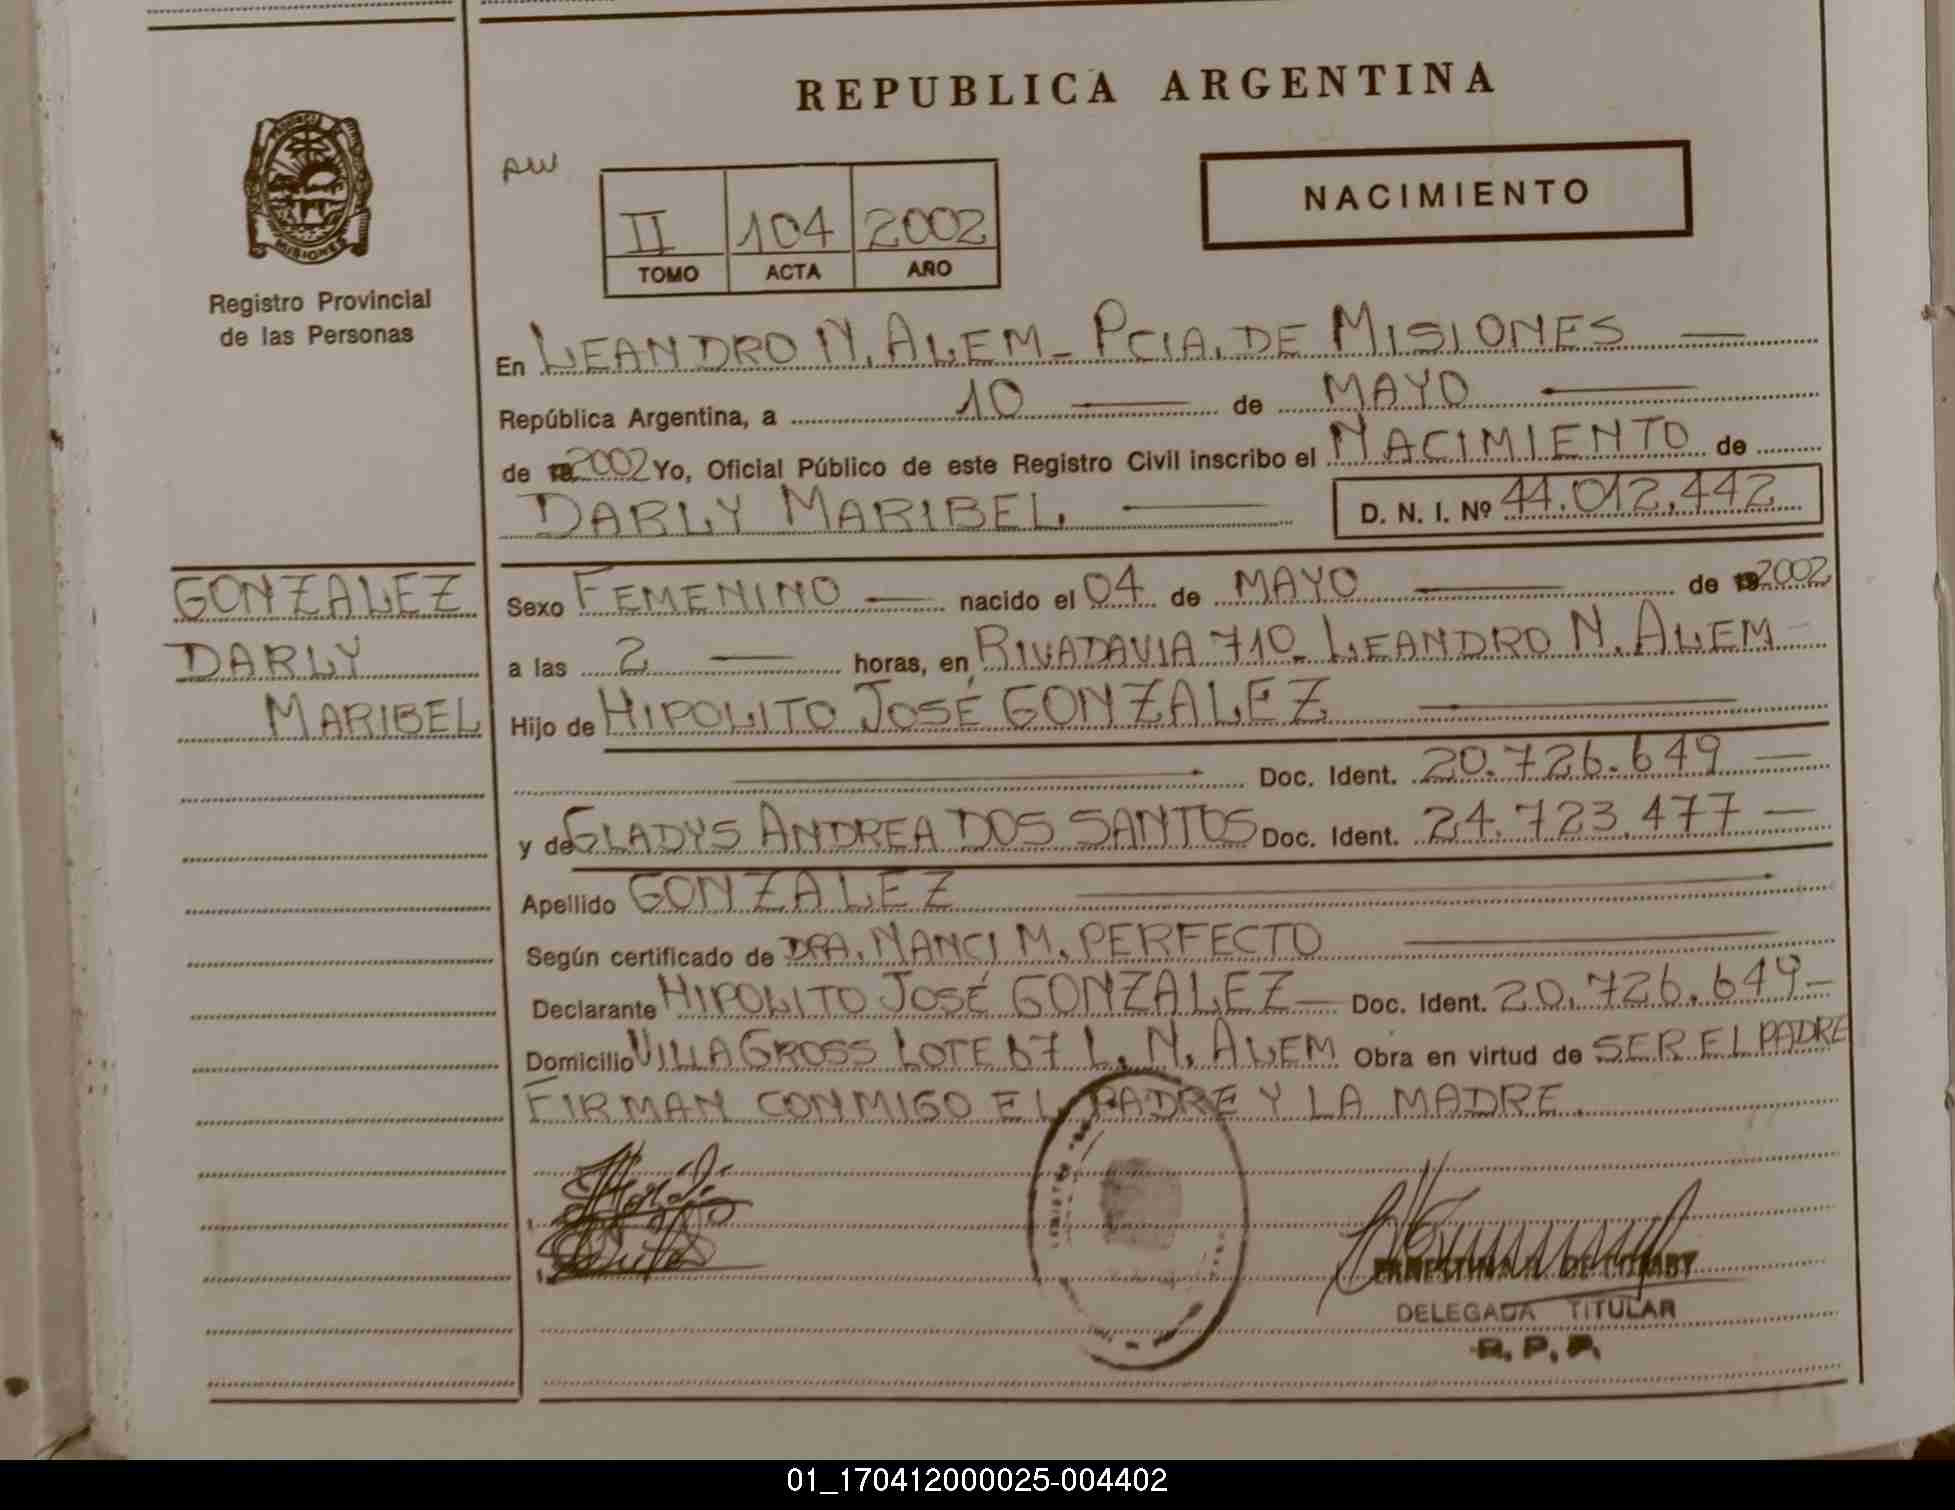 REPUBLICA ARGENTINA
PROVINCIA DE MISIONES
Registro Provincial
de las Personas
AW
II 104 2002
TOMO ACTA AÑO
NACIMIENTO
En LEANDRO N. ALEM - PCIA. DE MISIONES
República Argentina, a 10 de MAYO
de 19 2002 Yo, Oficial Público de este Registro Civil inscribo el NACIMIENTO de
DARLY MARIBEL. D. N. I. Nº 44.012.442
GONZALEZ
DARLY
MARIBEL
Sexo FEMENINO nacido el 04 de MAYO de 19 2002
a las 2 horas, en RIVADAVIA 710 - LEANDRO N. ALEM
Hijo de HIPOLITO JOSÉ GONZALEZ
Doc. Ident. 20.726.649
y de GLADYS ANDREA DOS SANTOS Doc. Ident. 24.723.477
Apellido GONZALEZ
Según certificado de DRA. NANCI M. PERFECTO
Declarante HIPOLITO JOSÉ GONZALEZ Doc. Ident. 20.726.649
Domicilio VILLA GROSS LOTE 67 L. N. ALEM Obra en virtud de SER EL PADRE
FIRMAN CONMIGO EL PADRE Y LA MADRE.
DELEGADA TITULAR
R. P. P.
01_170412000025-004402